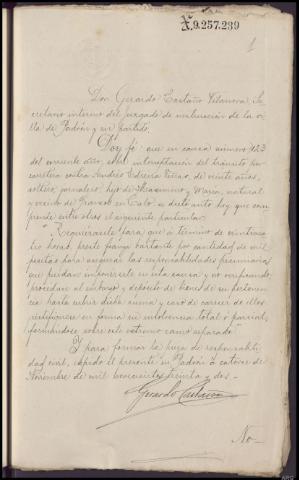 A.9.257.239
1
Don Gerardo Castaño Vilanova, Se-
cretario interino del juzgado de instrucción de la vi-
lla de Padrón y su partido.
Doy fé que en causa número 123
del corriente año, sobre interceptación del tránsito por
carretera contra Andrés de veinte años,
soltero, jornalero, hijo de y María, natural
y vecino de en Catoira se dictó auto hoy que com-
prende entre otros el siguiente particular
"Requiérasele para que a término de veinticua-
tro horas, preste fianza bastante por cantidad de mil
pesetas para asegurar las responsabilidades pecuniarias
que puedan imponérsele en esta causa y no verificando,
procédase al embargo y depósito de bienes de su pertenen-
cia hasta cubrir dicha suma y caso de carecer de ellos
justifíquese en forma su insolvencia total o parcial,
formándose sobre este extremo ramo separado"
Y para formar la pieza de responsabili-
dad civil, expido el presente en Padrón a catorce de
Noviembre de mil novecientos treinta y dos.-
Gerardo Castaño
No-